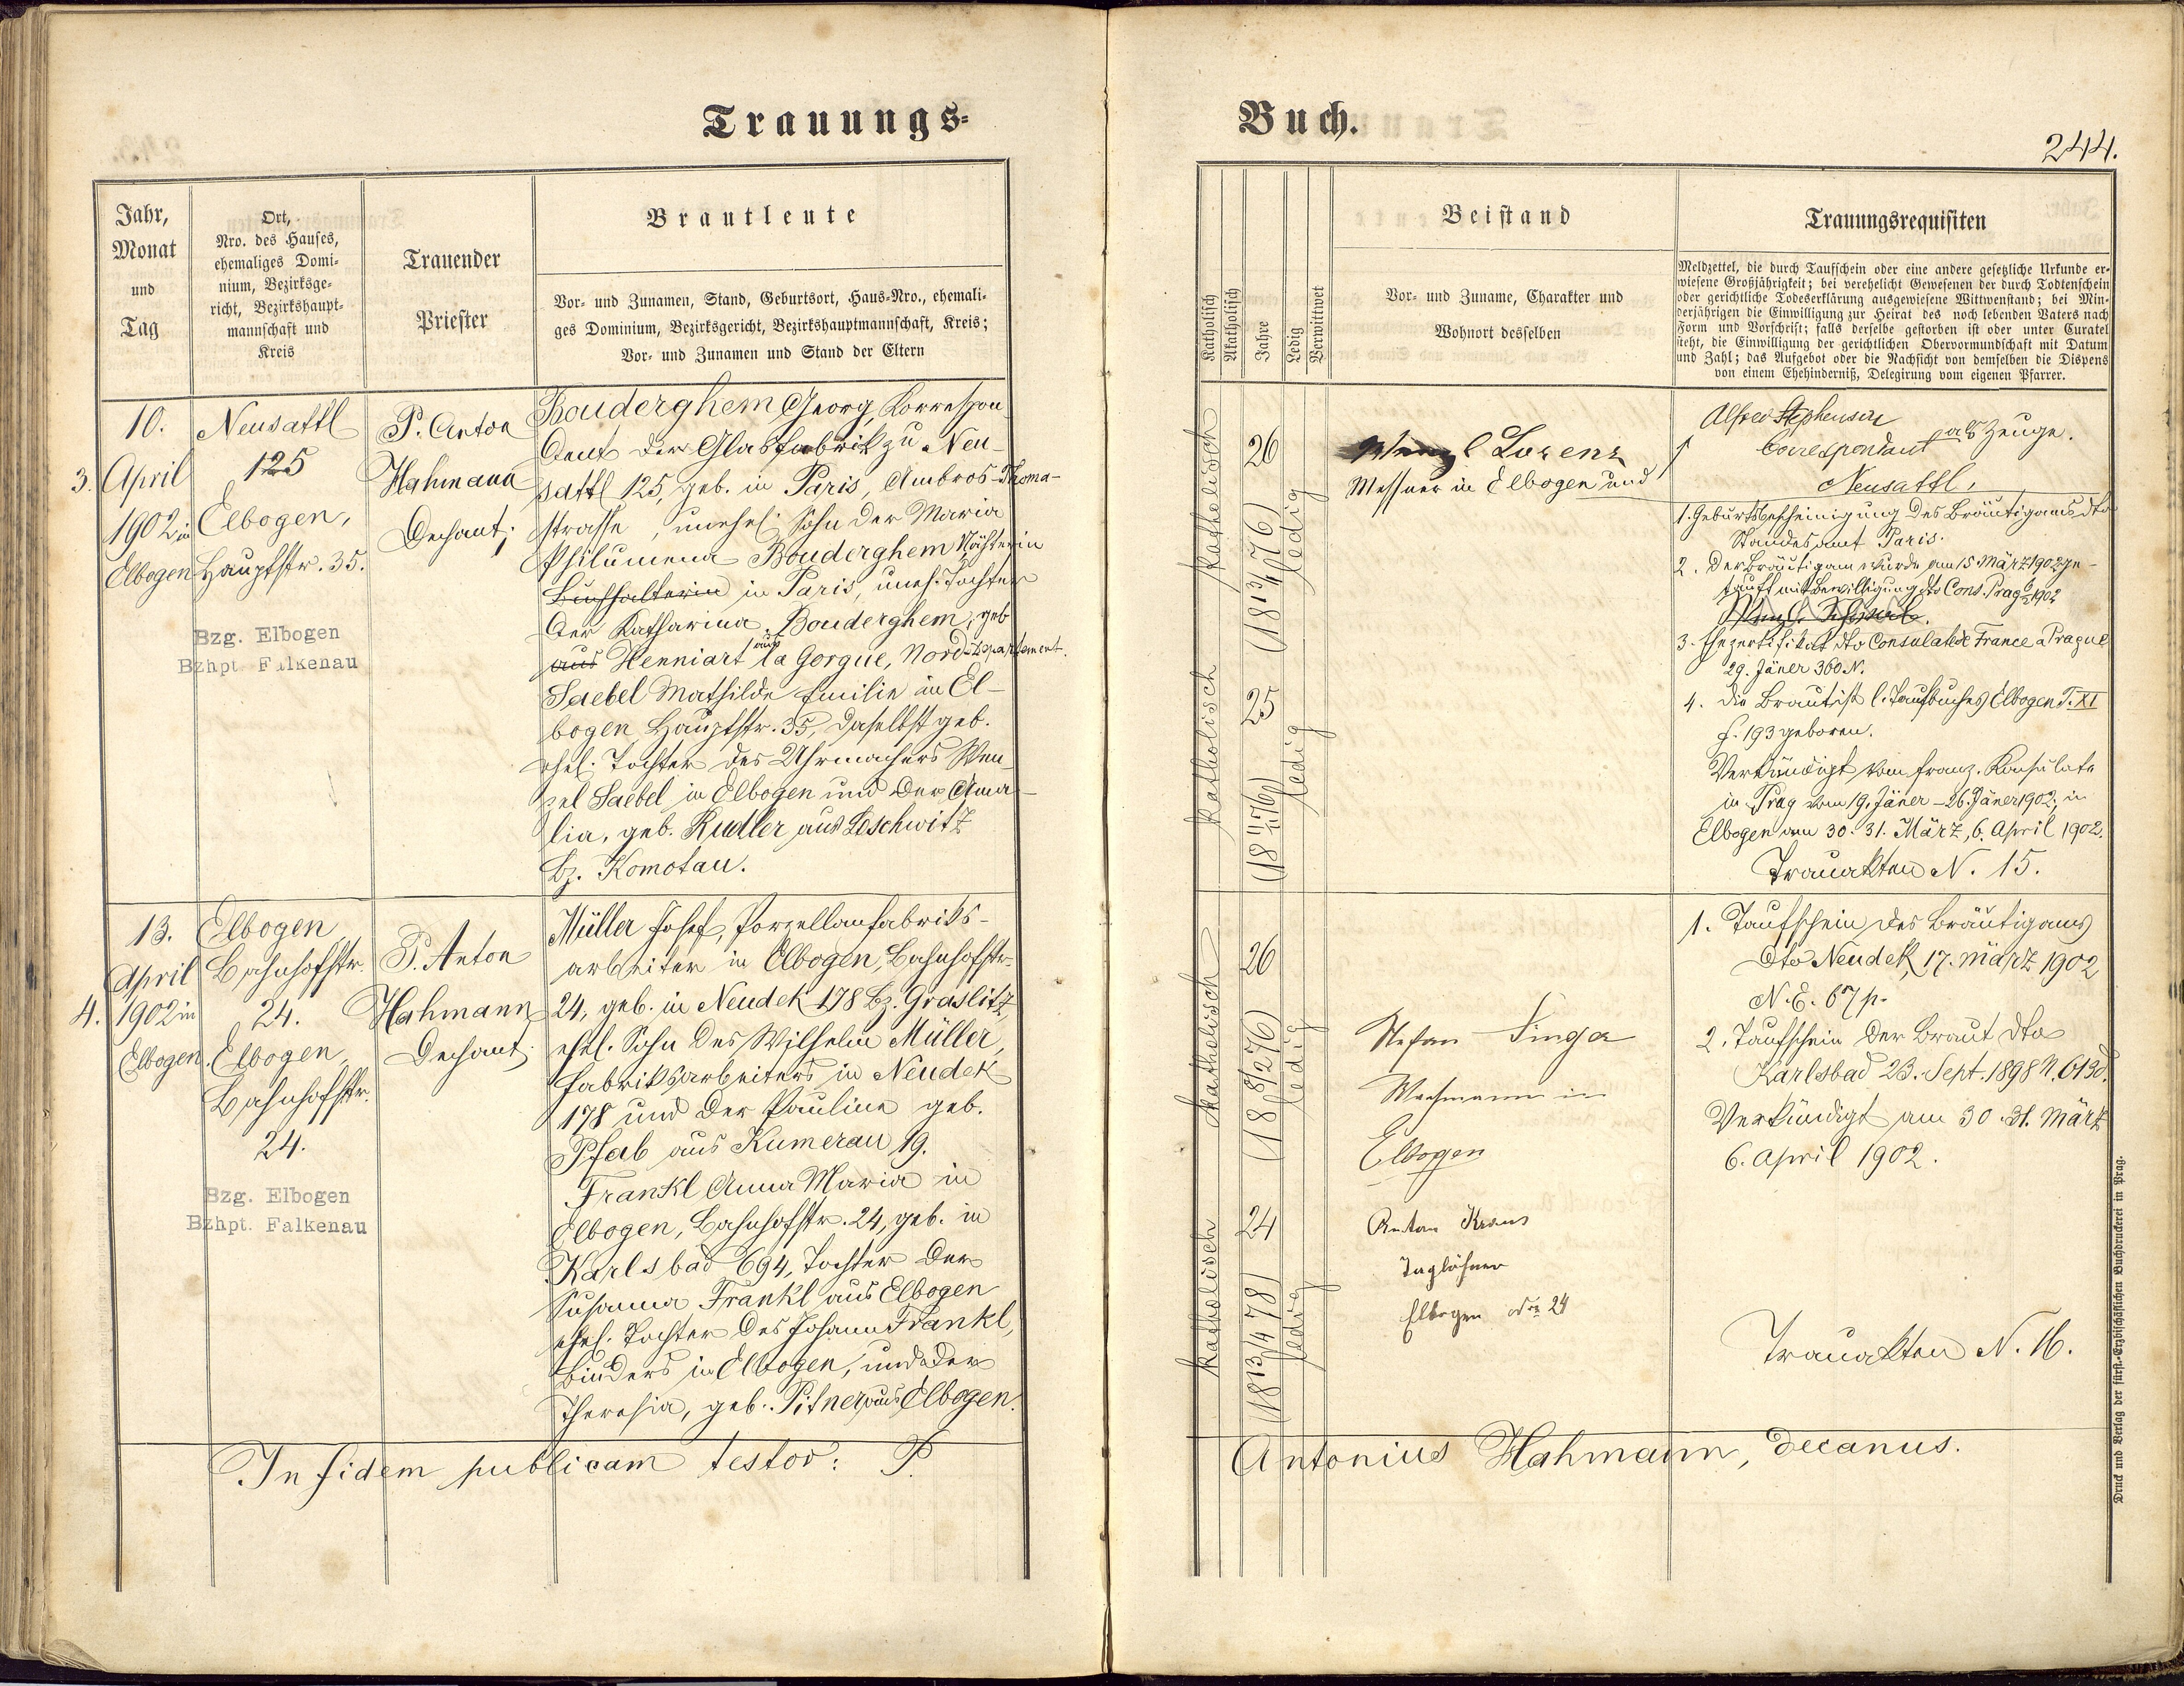 Trauungs-
Jahr,
Monat
und
Tag
Ort,
Nro. des Hauses,
ehemaliges Domi-
nium, Bezirksge-
richt, Bezirkshaupt-
mannschaft und
Kreis
Trauender
Priester
Brautleute
Vor- und Zunamen, Stand, Geburtsort, Haus-Nro., ehemali-
ges Dominium, Bezirksgericht, Bezirkshauptmannschaft, Kreis;
Vor- und Zunamen und Stand der Eltern
10.
3. April
1902 in
Elbogen
Neusattl
125
Elbogen,
Hauptstr. 35.
Bzg. Elbogen
Bzhpt Falkenau
P. Anton
Hahmann
Dechant;
Bouderghem Georg, Korrespon-
dent der Glasfabrik zu Neu-
sattl 125, geb. in Paris, Ambros-Thoma-
strasse, unehel. Sohn der Maria
Philumena Bouderghem Nähterin
Buchhalterin in Paris, uneh. Tochter
der Katharina Bouderghem, geb
aus Henniart aus la Gorgue, Nord-Departement.
Saebel Mathilde Emilie in El-
bogen Hauptstr. 35, daselbst geb.
ehel. Tochter des Uhrmachers Wen-
zel Saebel in Elbogen und der Ama-
lia, geb. Rudler aus Leschwitz
Bz. Komotau.
13.
April
4. 1902 in
Elbogen.
Elbogen
Bahnhofstr.
24.
Elbogen
Bahnhofstr.
24.
Bzg. Elbogen
Bzhpt. Falkenau
P. Anton
Hahmann
Dechant;
Müller Josef, Porzellanfabriks-
arbeiter in Elbogen, Bahnhofstr.
24, geb. in Neudek 178 Bz. Graslitz,
ehel. Sohn des Wilhelm Müller,
Fabriksarbeiters in Neudek
178 und der Pauline geb.
Pfab aus Kumerau 19.
Frankl Anna Maria in
Elbogen, Bahnhofstr. 24, geb. in
Karlsbad 694, Tochter der
Susanna Frankl aus Elbogen
ehel. Tochter des Johann Frankl,
Binders in Elbogen, und der
Theresia, geb. Pitner aus Elbogen.
In fidem publicam testor: P.
Buch.
244.
Katholisch
Akatholisch
Jahre
Ledig
Verwittwet
Beistand
Vor- und Zuname, Charakter und
Wohnort desselben
Trauungsrequisiten
Meldzettel, die durch Taufschein oder eine andere gesetzliche Urkunde er-
wiesene Großjährigkeit; bei verehelicht Gewesenen der durch Todtenschein
oder gerichtliche Todeserklärung ausgewiesene Wittwenstand; bei Min-
derjährigen die Einwilligung zur Heirat des noch lebenden Vaters nach
Form und Vorschrift; falls derselbe gestorben ist oder unter Curatel
steht, die Einwilligung der gerichtlichen Obervormundschaft mit Datum
und Zahl; das Aufgebot oder die Nachsicht von demselben die Dispens
von einem Ehehinderniß, Delegirung vom eigenen Pfarrer.
katholisch
26
(18 13/4 76)
ledig
katholisch
25
ledig
Lorenz
Messner in Elbogen und
Alfred Stephenson
Correspondant als Zeuge.
Neusattl,
1. Geburtsbescheinigung des Bräutigams dto
Standesamt Paris.
2. Der Bräutigam wurde am 15 März 1902 ge-
tauft mit Bewilligung dto Cons. Prag 1902
3. Ehezertifikat dto Consulat de France a Prague
29. Jäner 360 N.
4. Die Braut ist l. Taufbuches Elbogen T. XI
f. 193 geboren.
Verkündigt vom franz. Konsulate
in Prag vom 19. Jäner - 26. Jäner 1902; in
Elbogen am 30. 31. März, 6. April 1902.
Trauakten N. 15.
katholisch
26
(18 8/2 76)
ledig
katholisch
24
(18 13/4 78)
ledig
Stefan Singer
Wachmann in
Elbogen
Anton Kraus
Taglöhner
Elbogen Nro 24
1. Taufschein des Bräutigams
dto Neudek, 17. März 1902
N. E. 67 p.
2. Taufschein der Braut dto
Karlsbad 23. Sept. 1898 N. 6130.
Verkündigt am 30. 31. März
6. April 1902.
Trauakten N. 16.
Antonius Hahmann, Decanus.
Druck und Verlag der fürst-Erzbischöflichen Buchdruckerei in Prag.